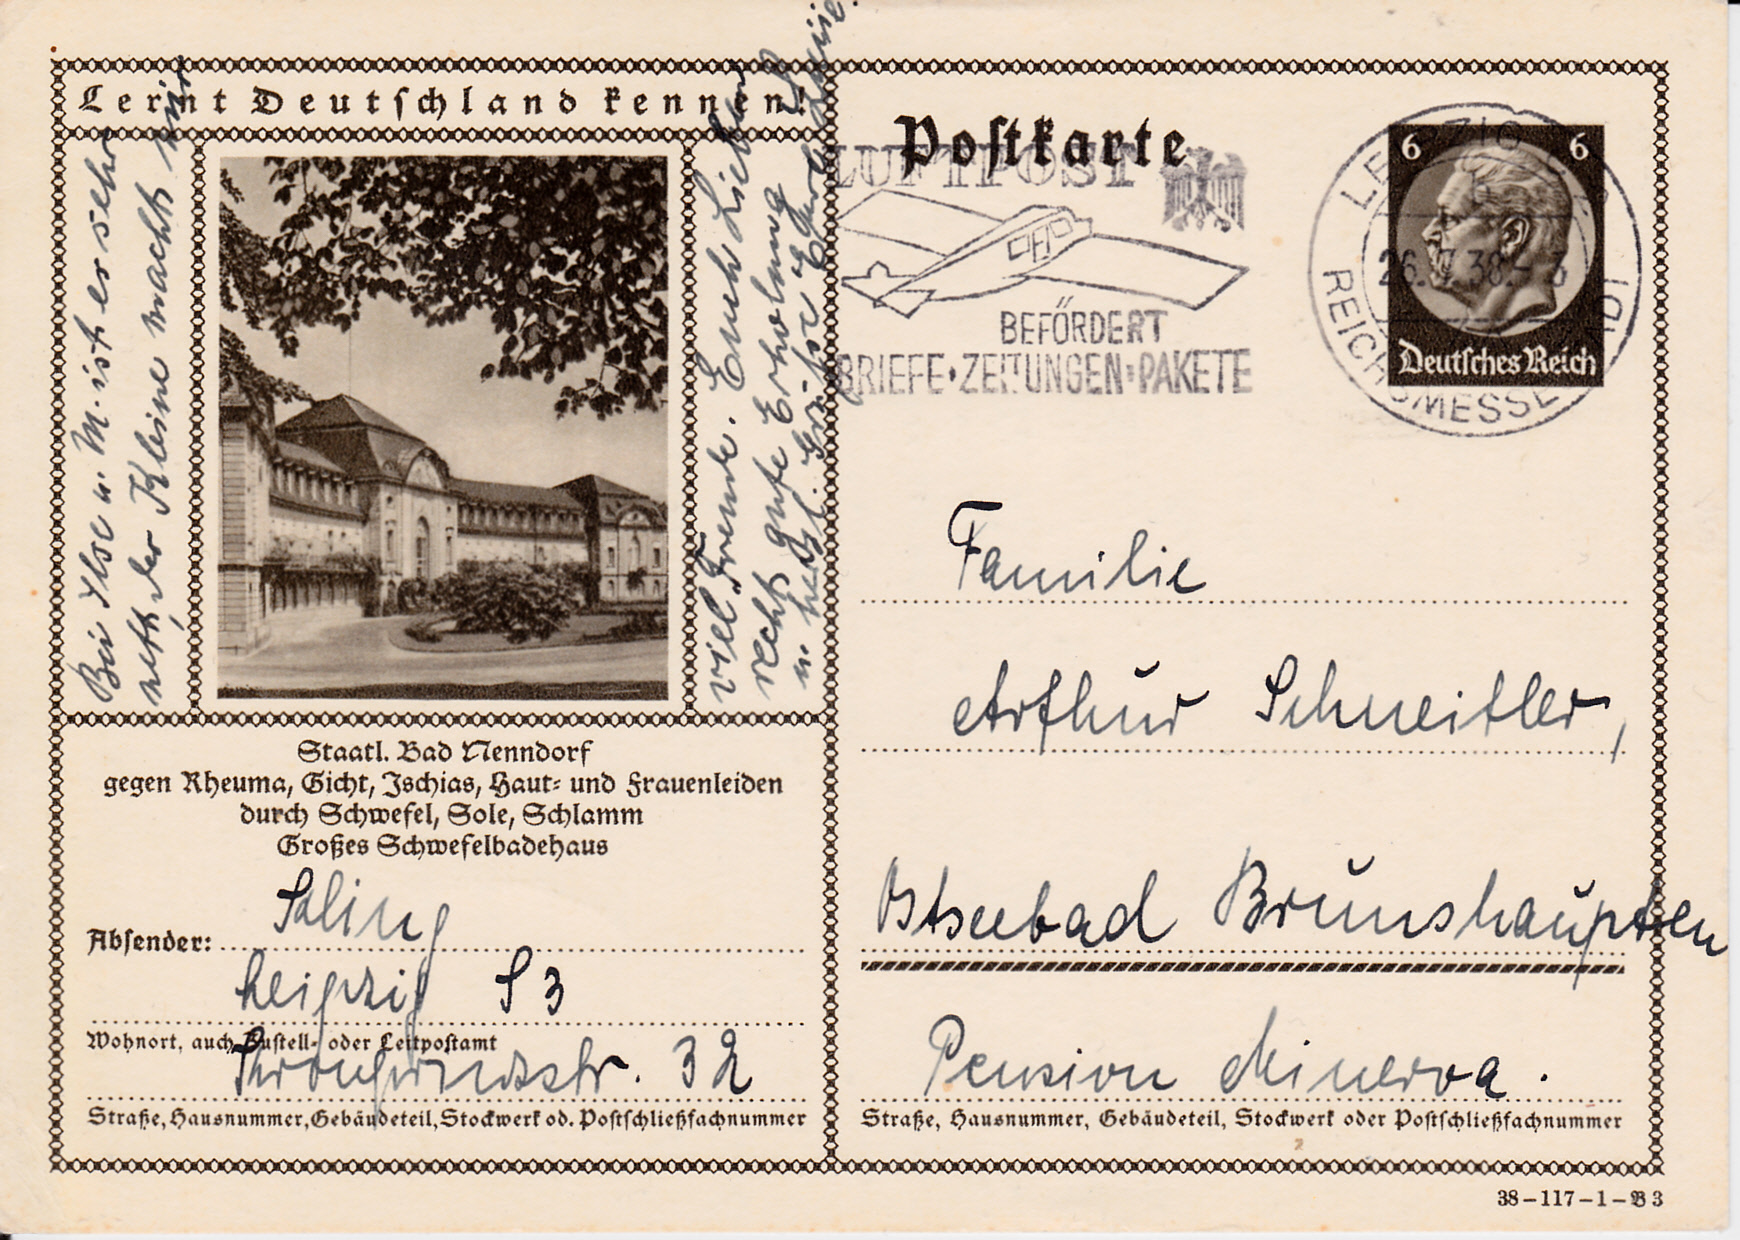 Lernt Deutschland kennen!
Bei Ilse u. M. ist er sehr
nett, der Kleine macht mir
viel Freude. Euch Lieben
recht gute Erholung
u. herzl. Grüße
Staatl. Bad Nenndorf
gegen Rheuma, Gicht, Ischias, Haut- und Frauenleiden
durch Schwefel, Sole, Schlamm
Großes Schwefelbadehaus
Absender:
Saling
Leipzig S 3
Wohnort, auch Zustell- oder Leitpostamt
32
Straße, Hausnummer, Gebäudeteil, Stockwerk od. Postschließfachnummer
Postkarte
LUFTPOST
BEFÖRDERT
BRIEFE · ZEITUNGEN · PAKETE
LEIPZIG
38
REICHSMESSESTADT
6 6
Deutsches Reich
Familie
Arthur Schneitler,
Ostseebad Brunshaupten
Pension Minerva.
Straße, Hausnummer, Gebäudeteil, Stockwerk oder Postschließfachnummer
38-117-1-B 3